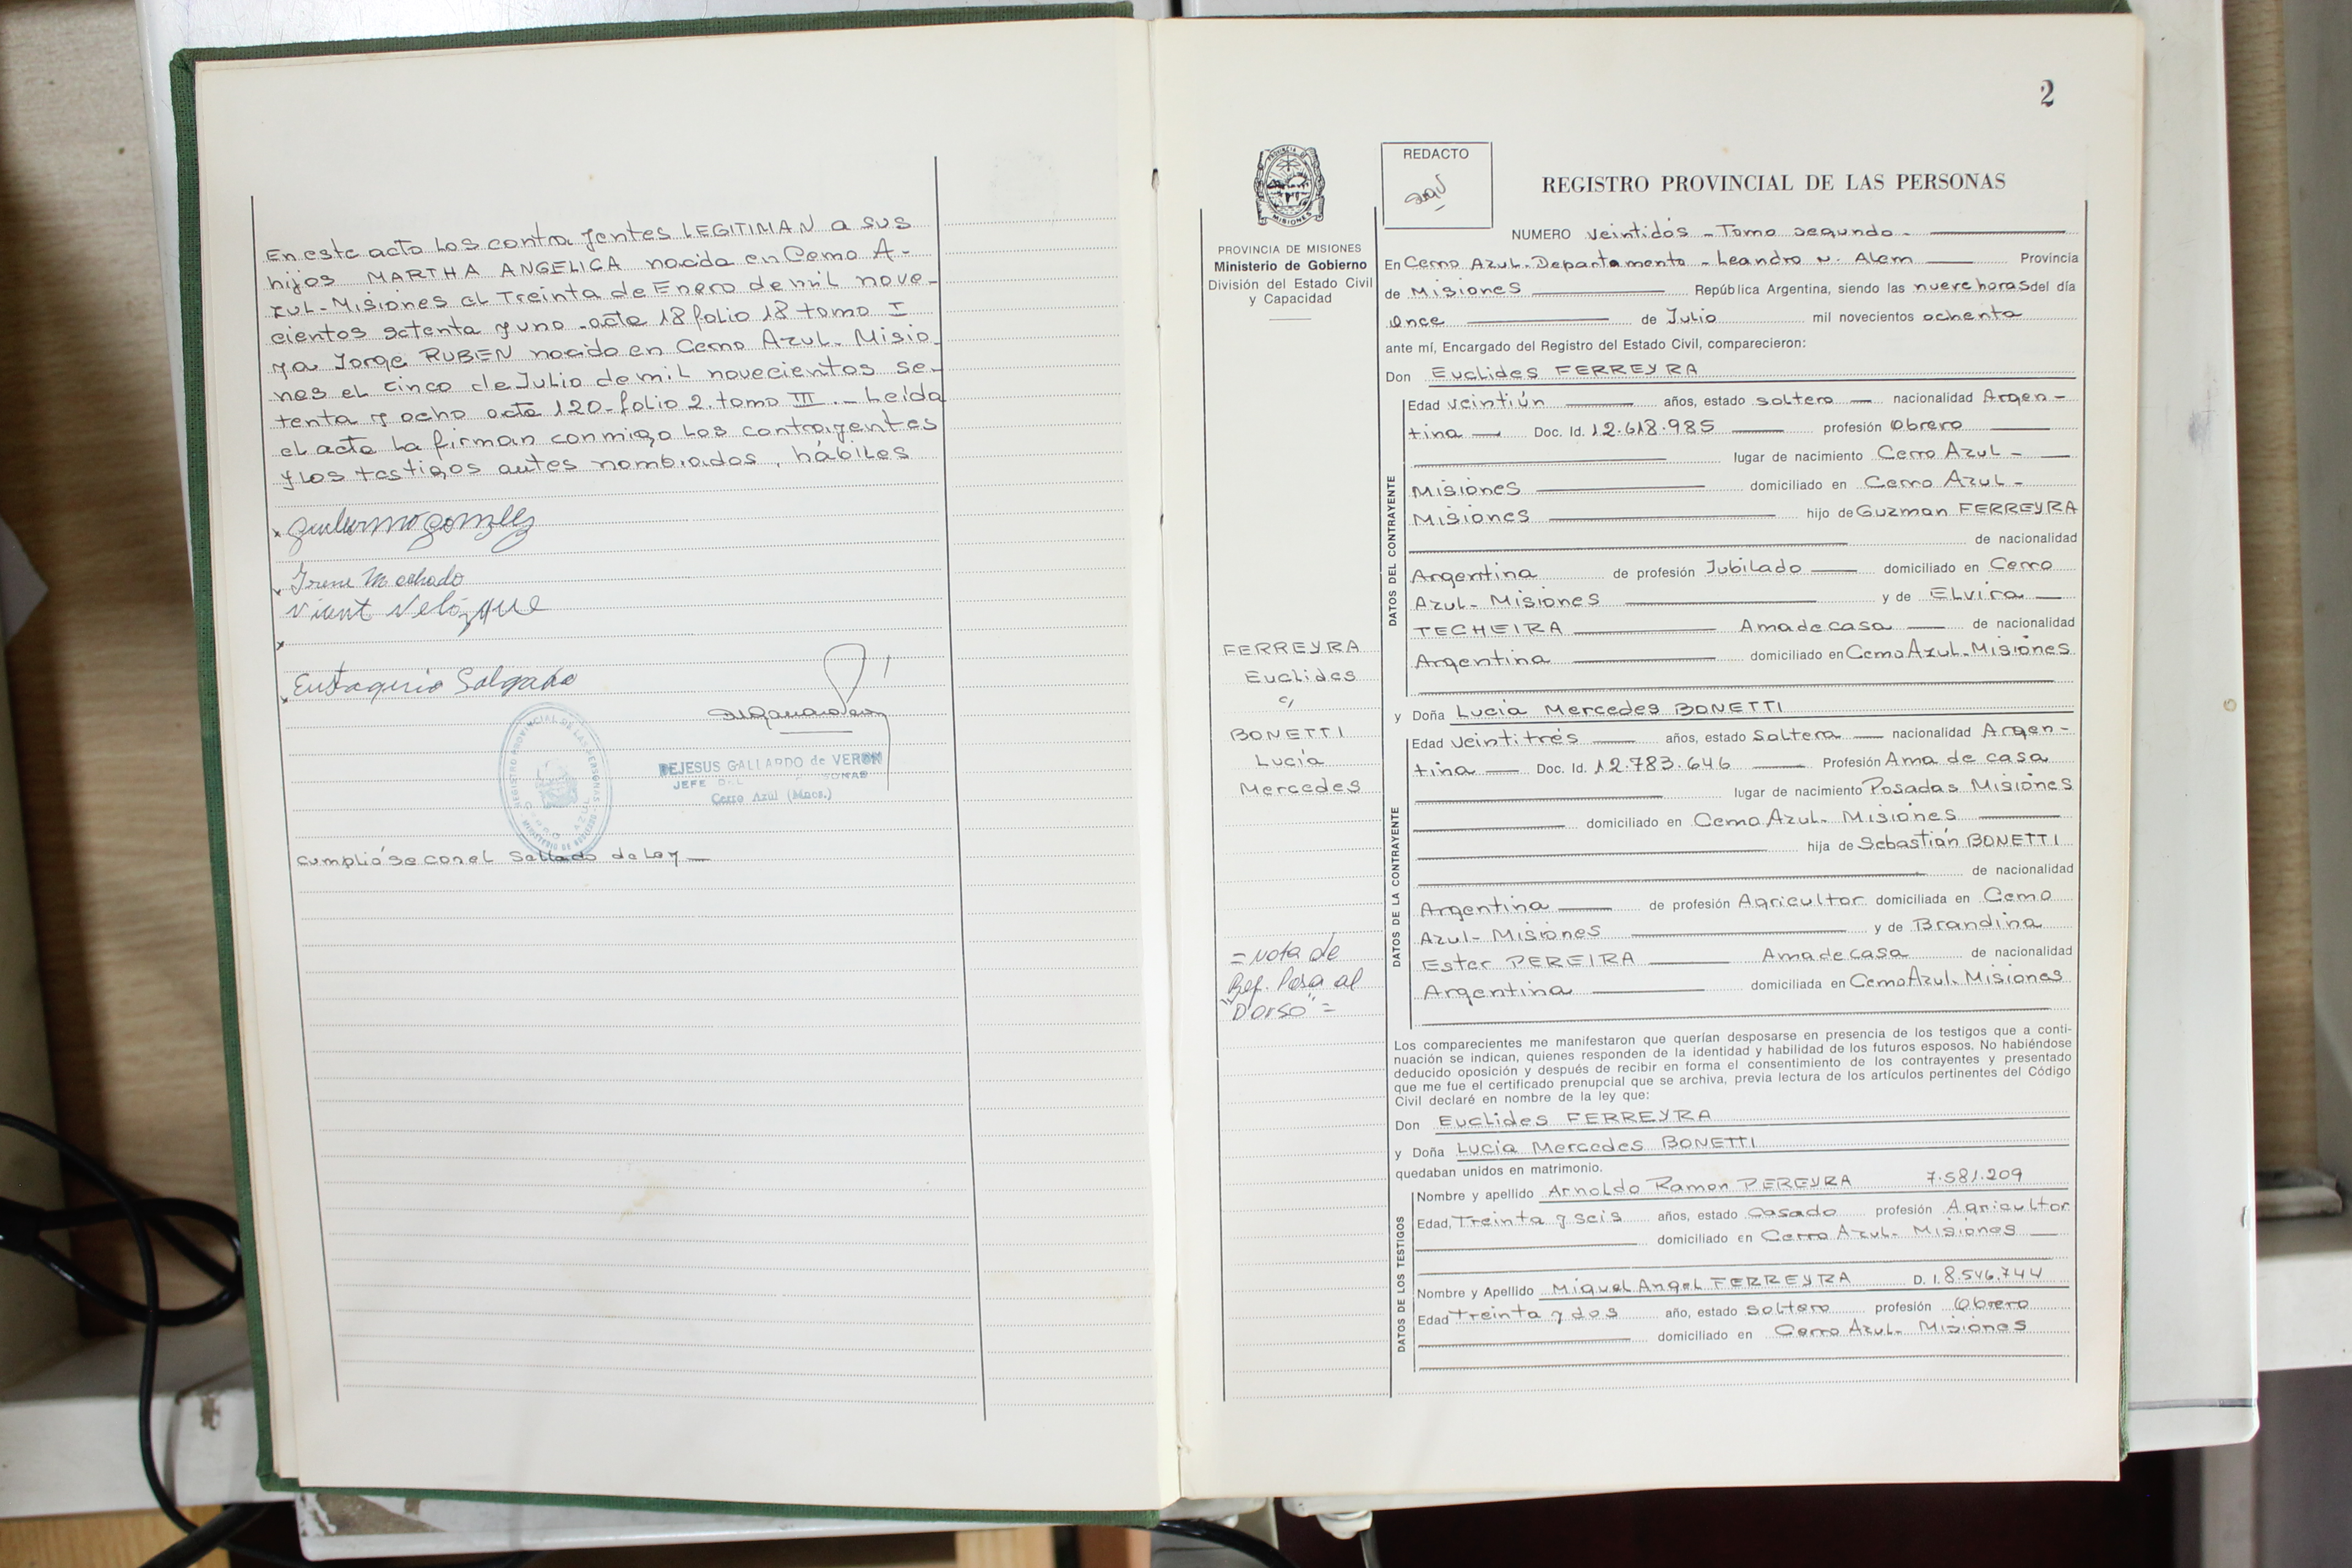 En este acto Los contrayentes LEGITIMAN a sus
hijos MARTHA ANGELICA nacida en Cerro A-
zul-Misiones el Treinta de Enero de mil nove-
cientos setenta y uno -acta 18 folio 18 tomo I
y a Jorge RUBEN nacido en Cerro Azul- Misio-
nes el cinco de Julio de mil novecientos se-
tenta y ocho acta 120-folio 2. tomo III.- Leída
el acta la firman conmigo los contrayentes
y los testigos antes nombrados, hábiles
x Guillermo Gomez
x Irene Machado
Velázque
x
x Eustaquio Salgado
REGISTRO PROVINCIAL DE LAS PERSONAS
DEJESUS GALLARDO de VERON
JEFE
Cerro Azul (Mnes.)
cumplió'se con el Sellado de Ley —
2
PROVINCIA DE MISIONES
Ministerio de Gobierno
División del Estado Civil
y Capacidad
FERREYRA
Euclides
c/
BONETTI
Lucía
Mercedes
= Nota de
Ref. Pasa al
"Dorso" =
REDACTO
REGISTRO PROVINCIAL DE LAS PERSONAS
NUMERO veintidós - Tomo segundo -
En Cerro Azul- Departamento - Leandro N. Alem — Provincia
de Misiones — República Argentina, siendo las nueve horas del día
Once — de Julio mil novecientos ochenta
ante mí, Encargado del Registro del Estado Civil, comparecieron:
Don Euclides FERREYRA
DATOS DEL CONTRAYENTE
Edad veintiún — años, estado soltero — nacionalidad Argen-
tina — Doc. Id. 12.618.985 — profesión Obrero —
lugar de nacimiento Cerro Azul - —
Misiones — domiciliado en Cerro Azul -
Misiones — hijo de Guzman FERREYRA
de nacionalidad
Argentina de profesión Jubilado — domiciliado en Cerro
Azul- Misiones — y de Elvira —
TECHEIRA — Ama de casa — de nacionalidad
Argentina — domiciliado en Cerro Azul-Misiones
y Doña Lucia Mercedes BONETTI
DATOS DE LA CONTRAYENTE
Edad veintitrés — años, estado Soltera — nacionalidad Argen-
tina — Doc. Id. 12.783.646 — Profesión Ama de casa
lugar de nacimiento Posadas Misiones
— domiciliado en Cerro Azul- Misiones —
hija de Sebastián BONETTI
de nacionalidad
Argentina — de profesión Agricultor domiciliada en Cerro
Azul- Misiones — y de Brandina
Ester PEREIRA — Ama de casa de nacionalidad
Argentina — domiciliada en Cerro Azul- Misiones
Los comparecientes me manifestaron que querían desposarse en presencia de los testigos que a conti-
nuación se indican, quienes responden de la identidad y habilidad de los futuros esposos. No habiéndose
deducido oposición y después de recibir en forma el consentimiento de los contrayentes y presentado
que me fue el certificado prenupcial que se archiva, previa lectura de los artículos pertinentes del Código
Civil declaré en nombre de la ley que:
Don Euclides FERREYRA
y Doña Lucia Mercedes BONETTI
quedaban unidos en matrimonio.
DATOS DE LOS TESTIGOS
Nombre y apellido Arnoldo Ramon PEREYRA 7.581.209
Edad, Treinta y seis años, estado Casado profesión Agricultor
domiciliado en Cerro Azul- Misiones —
Nombre y Apellido Miguel Angel FERREYRA D. I. 8.546.744
Edad Treinta y dos año, estado soltero profesión Obrero
domiciliado en Cerro Azul- Misiones